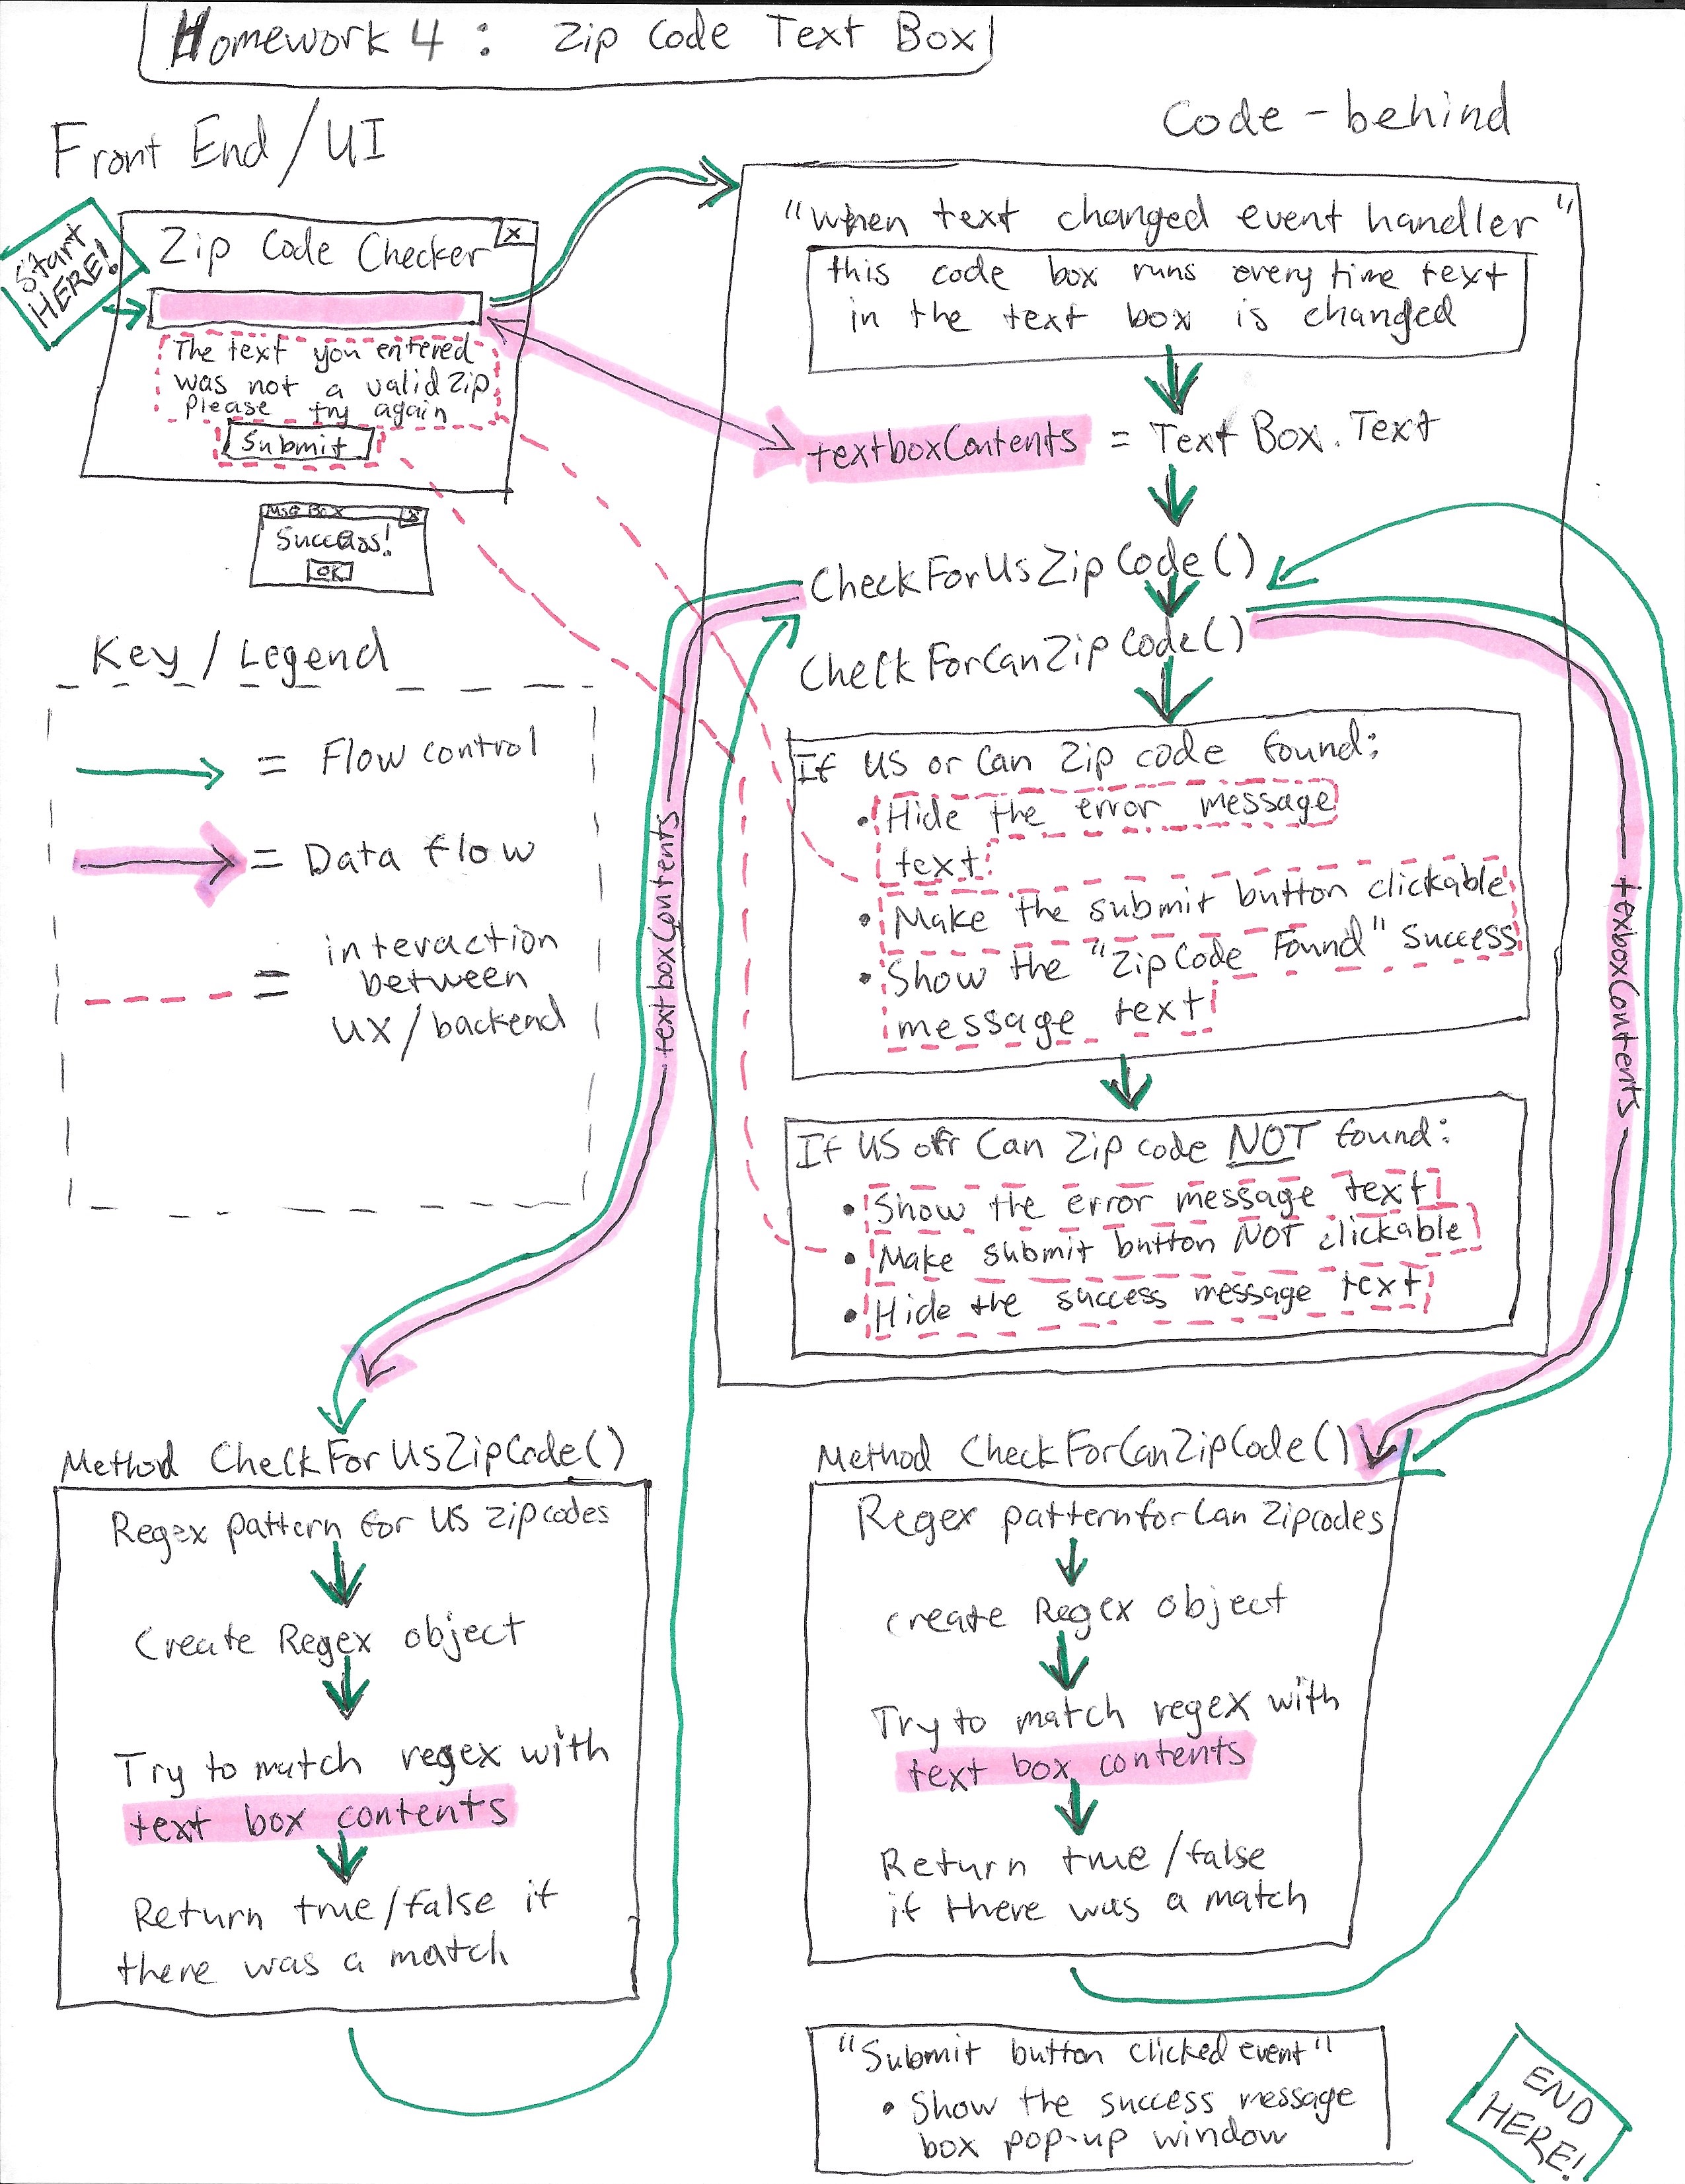 Homework 4 : Zip Code Text Box
Front End / UI
Code-behind
Start
HERE!
Zip Code Checker
x
The text you entered
was not a valid zip
Please try again
Submit
Msg Box
x
Success!
OK
Key / Legend
= Flow control
= Data flow
= interaction
between
UX/backend
"When text changed event handler"
this code box runs every time text
in the text box is changed
textboxContents = TextBox.Text
CheckForUsZipCode()
CheckForCanZipCode()
If US or Can Zip code found:
• Hide the error message
text
• Make the submit button clickable
• Show the "ZipCode Found" success
message text
If US or Can Zip code NOT found:
• Show the error message text
• Make submit button NOT clickable
• Hide the success message text
textboxContents
texboxContents
Method CheckForUsZipCode()
Regex pattern for US zipcodes
Create Regex object
Try to match regex with
text box contents
Return true/false if
there was a match
Method CheckForCanZipCode()
Regex pattern for Can Zipcodes
create Regex object
Try to match regex with
text box contents
Return true/false
if there was a match
"Submit button clicked event"
• Show the success message
box pop-up window
END
HERE!